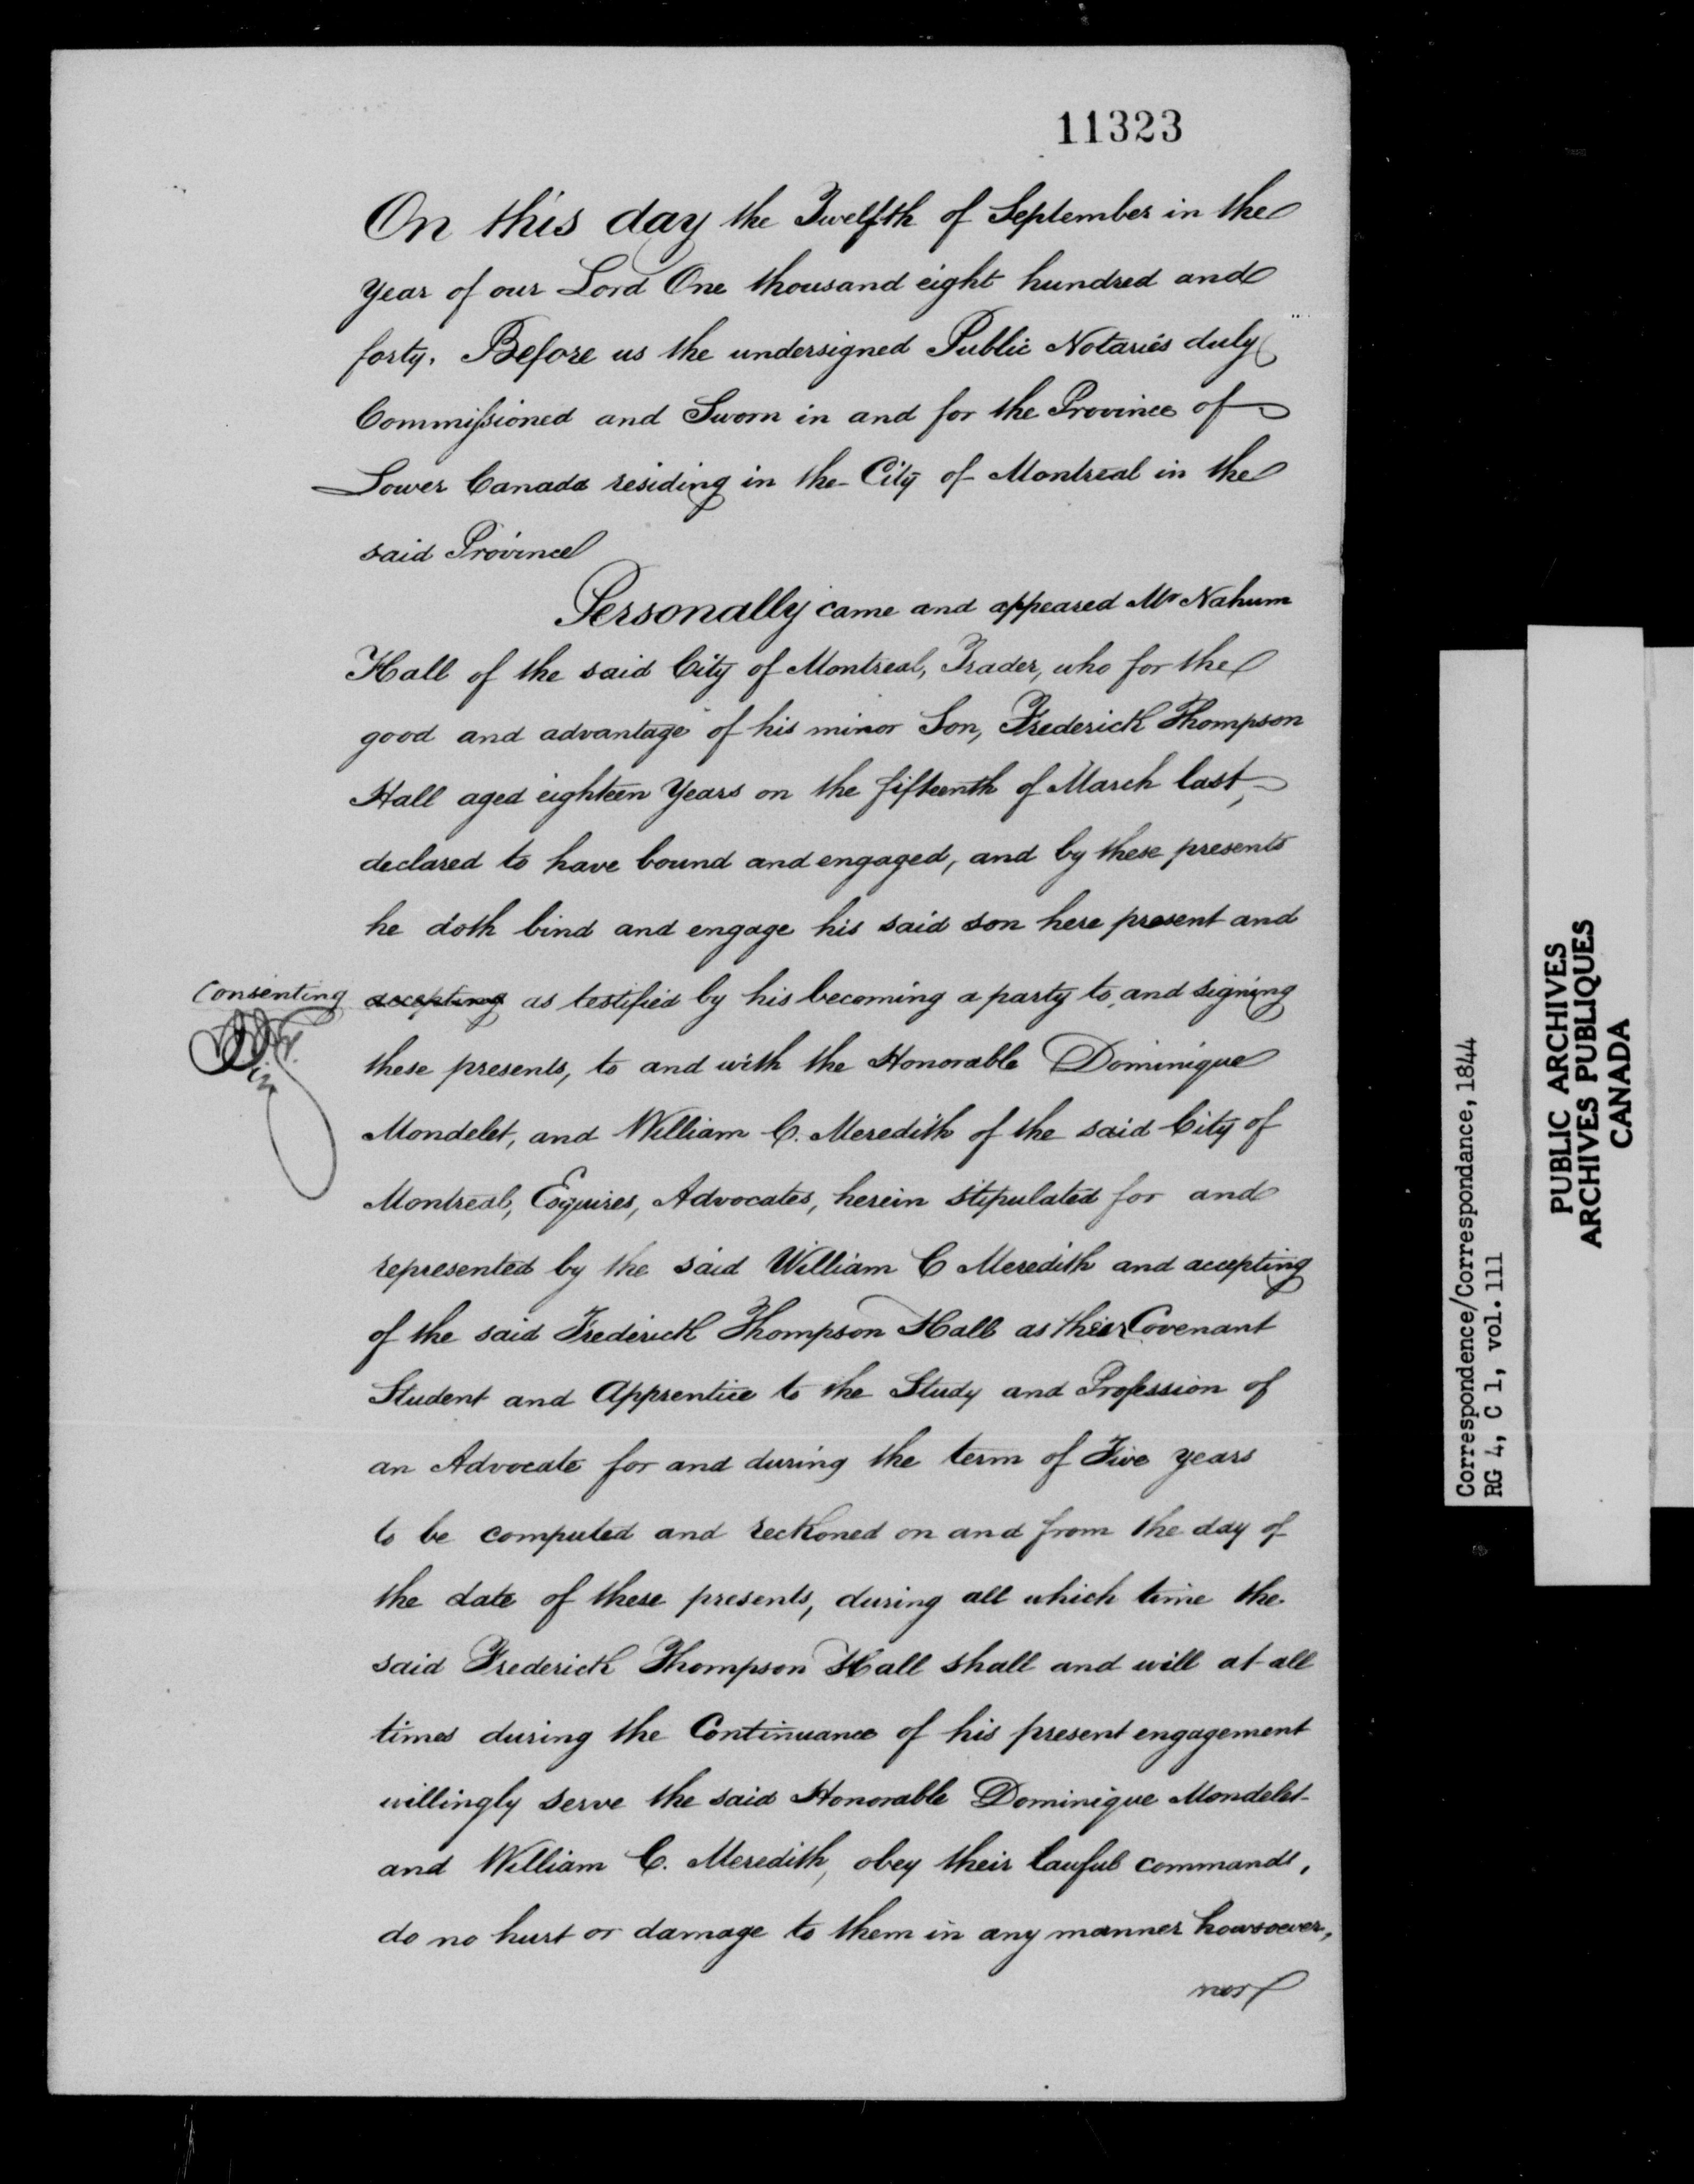 11323
On this day the Twelfth of September in the
year of our Lord One thousand eight hundred and
forty. Before us the undersigned Public Notaries duly
Commissioned and Sworn in and for the Province of
Lower Canada residing in the City of Montreal in the
said Province
Personally came and appeared Mr Nahum
Hall of the said City of Montreal, Trader, who for the
good and advantage of his minor Son, Frederick Thompson
Hall aged eighteen Years on the fifteenth of March last,
declared to have bound and engaged, and by these presents
he doth bind and engage his said son here present and
Consenting accepting as testified by his becoming a party to, and signing
these presents, to and with the Honorable Dominique
Mondelet, and William C. Meredith of the said City of
Montreal, Esquires, Advocates, herein stipulated for and
represented by the said William C Meredith and accepting
of the said Frederick Thompson Hall as their Covenant
Student and Apprentice to the Study and Profession of
an Advocate for and during the term of Five years
to be computed and reckoned on and from the day of
the date of these presents, during all which time the
said Frederick Thompson Hall shall and will at all
times during the Continuance of his present engagement
willingly serve the said Honorable Dominique Mondelet
and William C. Meredith, obey their lawful commands,
do no hurt or damage to them in any manner howsoever,
nor
Correspondence/Correspondance, 1844
RG 4, C 1, vol. 111
PUBLIC ARCHIVES
ARCHIVES PUBLIQUES
CANADA